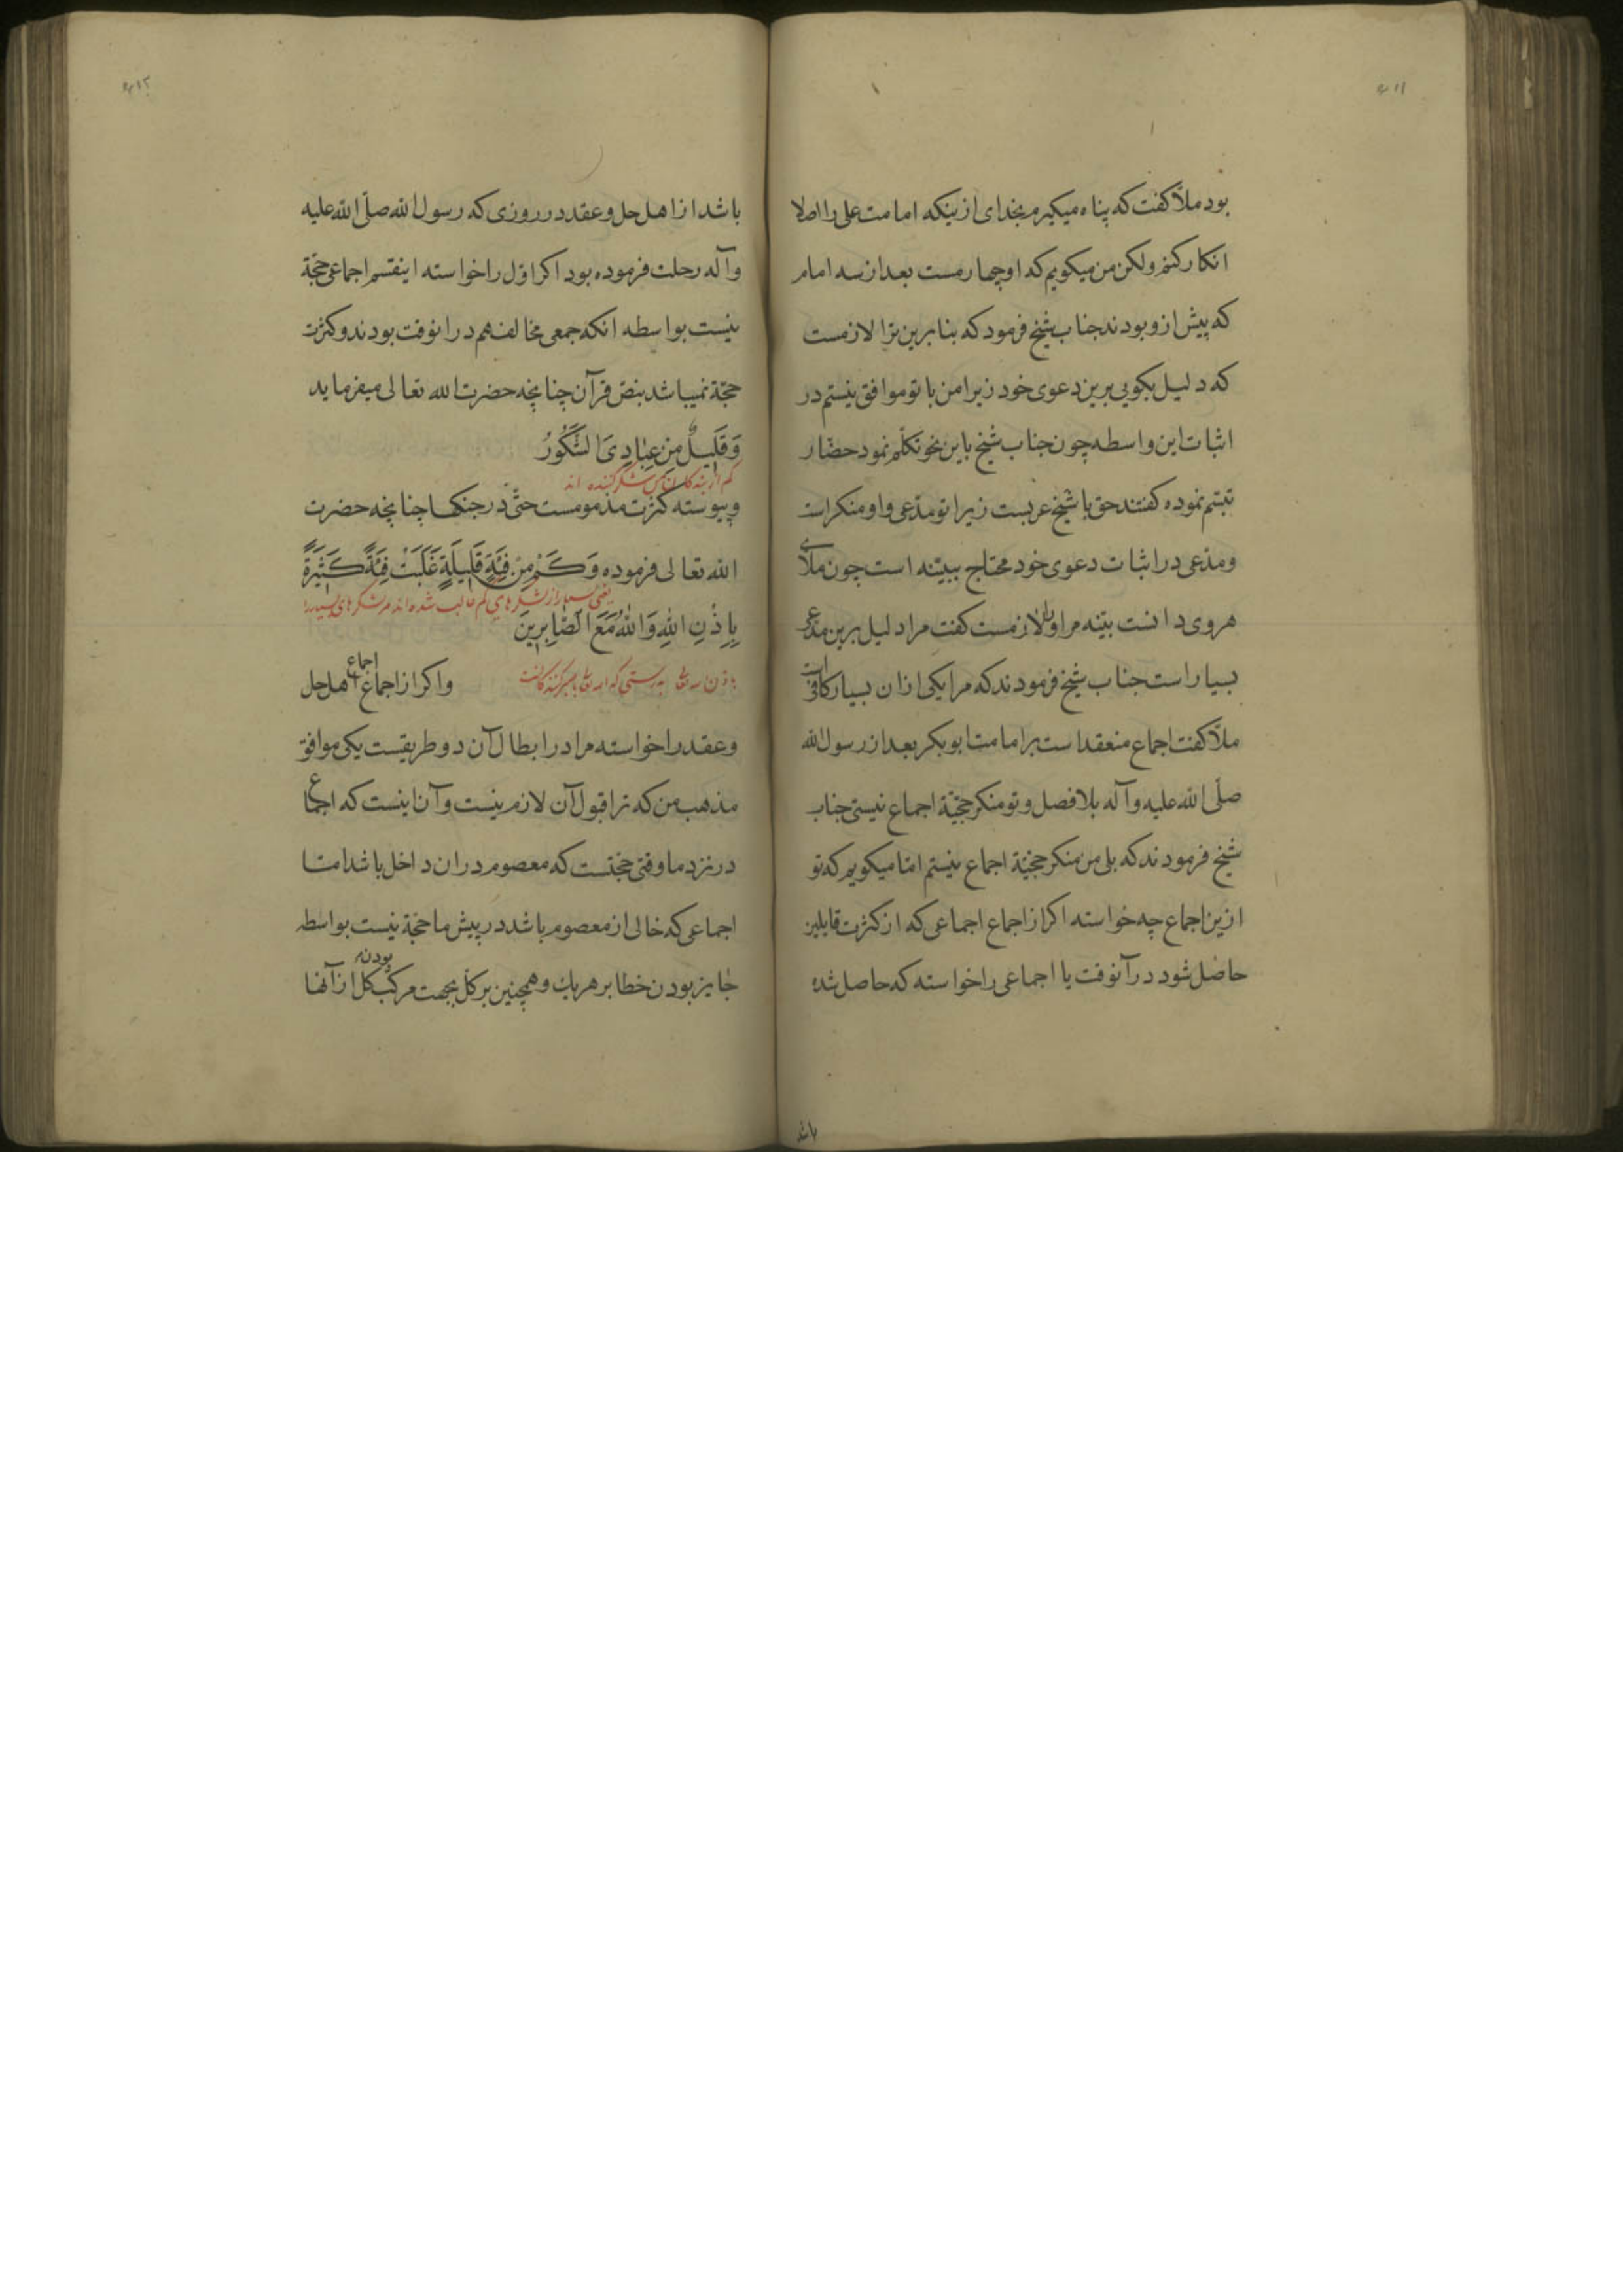 ۳۱۱
بود ملّا کفت که پناه میکیرم بخدای ازینکه امامت علی را اصلا
انکار کنم ولکن من میکویم که او چهارمست بعد از سه امام
که پیش ازو بودند جناب شیخ فرمود که بنابرین ترا لازمست
که دلیل بکویی برین دعوی خود زیرا من با تو موافق نیستم در
اثبات این واسطه چون جناب شیخ باین نحو تکلّم نمود حضّار
تبسّم نموده کفتند حق با شیخ عربست زیرا تو مدّعی و او منکر است
ومدّعی در اثبات دعوی خود محتاج ببیّنه است چون ملّای
هروی دانست بیّنه مر او را لازمست کفت مرا دلیل برین مدّعی
بسیار است جناب شیخ فرمودند که مرا یکی ازان بسیار کافی است
ملّا کفت اجماع منعقد است بر امامت ابوبکر بعد از رسول الله
صلّی الله علیه وآله بلا فصل و تو منکر حجّیّة اجماع نیستی جناب
شیخ فرمودند که بلی من منکر حجّیّة اجماع نیستم امّا میکویم که تو
ازین اجماع چه خواسته اکر از اجماع اجماعی که از کثرت قایلین
حاصل شود در آنوقت یا اجماعی را خواسته که حاصل شده
باشد
۳۱۲
باشد از اهل حل وعقد در روزی که رسول الله صلّی الله علیه
وآله رحلت فرموده بود اکر اوّل را خواسته اینقسم اجماعی حجّة
نیست بواسطه انکه جمعی مخالف هم در انوقت بودند وکثرت
حجّة نمیباشد بنصّ قرآن چنانچه حضرت الله تعالی میفرماید
وَقَلِیلٌ مِن عِبَادِیَ الشَّکُورُ
کم از بندکان من شکر کننده اند
وپیوسته کثرت مذمومست حتّی در جنکها چنانچه حضرت
الله تعالی فرموده وَکَمْ مِنْ فِئَةٍ قَلِیلَةٍ غَلَبَتْ فِئَةً کَثِیرَةً
یعنی بسیار از لشکرهای کم غالب شده اند بر لشکرهای بسیار
بِإِذْنِ اللهِ وَاللهُ مَعَ الصَّابِرِینَ
واکر از اجماع اجماع اهل حل
وعقد را خواسته مرا در ابطال آن دو طریقست یکی موافق
مذهب من که ترا قبول آن لازم نیست وآن اینست که اجماع
در نزد ما وقتی حجّتست که معصوم دران داخل باشد امّا
اجماعی که خالی از معصوم باشد در پیش ما حجّة نیست بواسطه
جایز بودن خطا بر هر یك وهمچنین بر کل بجهت مرکّب بودن کل از آنها